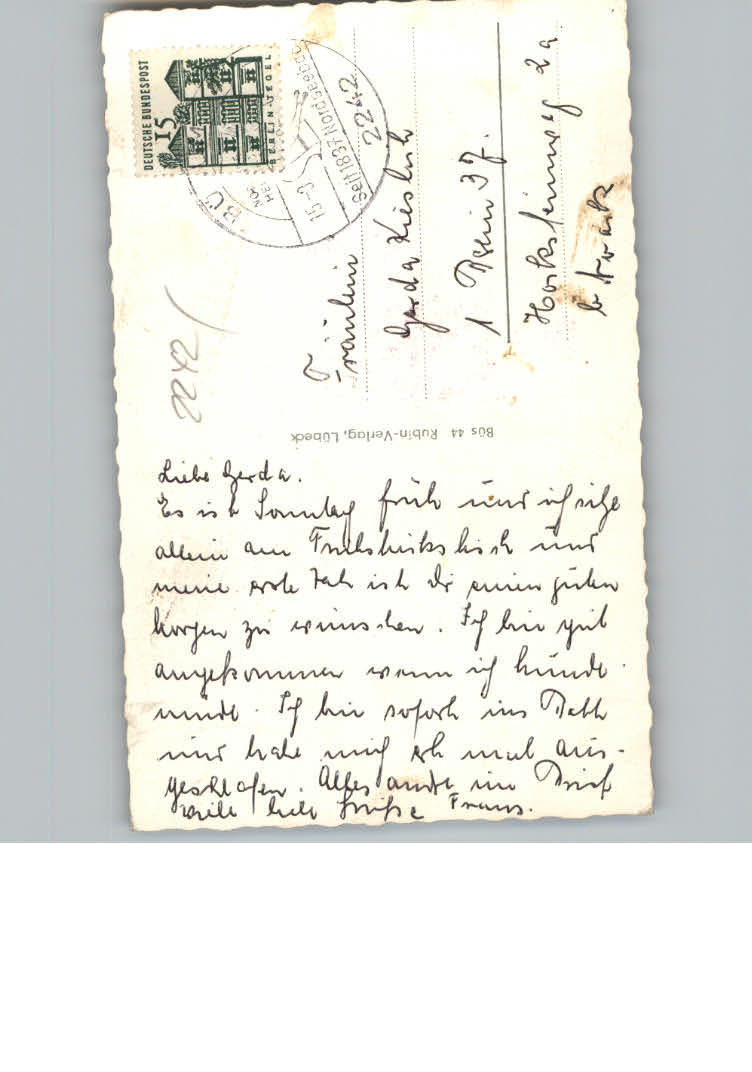 DEUTSCHE BUNDESPOST
15
BERLIN-TEGEL
BÜ
15.-9.
Seit 1837 Nordseebad
2242
2242/
Fräulein
Gerda
1 Berlin 37.
2a
b.
Büs 44 Rubin-Verlag, Lübeck
Liebe Gerda.
Es ist Sonntag früh und ich sitze
allein am Frühstückstisch und
meine erste Tat ist Dir einen guten
Morgen zu wünschen. Ich bin gut
angekommen wenn ich hunde
müde. Ich bin sofort ins Bett
und habe mich erst mal aus-
geschlafen. Alles andre im Brief
viele liebe Grüße Franz.